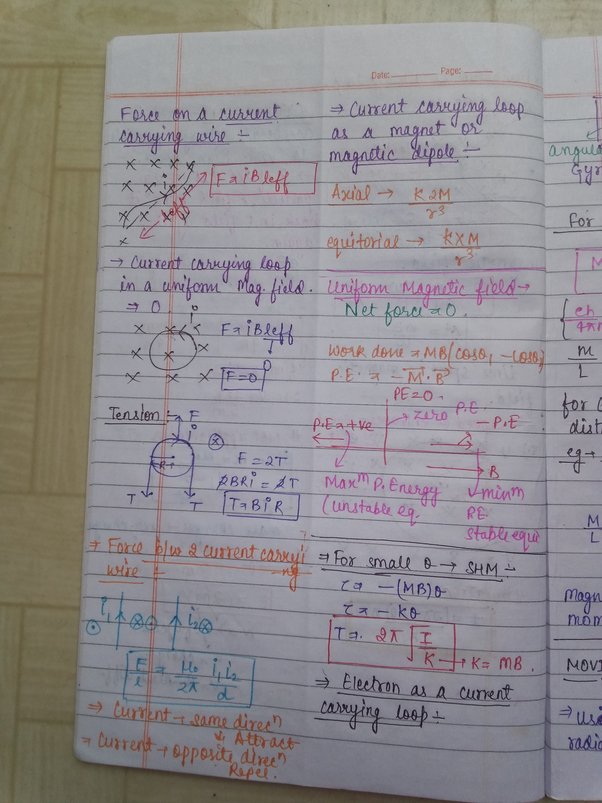 Date: Page:
Force on a current
carrying wire :-
x x x x
x x i x x
x x x x
x
F = iBleff
→ Current carrying loop
in a uniform Mag. field.
⇒ 0
i
x x x
x x
x x x
F = iBleff
0
F=0
Tension
F
i
R
T T
F = 2T
2BRi = 2T
T = BiR
⇒ Force b/w 2 current carryi
ng
wire :-
i1 i2
F/l = μ0/2π i1i2/d
⇒ Current → same direcn
↓ Attract
⇒ Current → opposite direcn
Repel.
⇒ Current carrying loop
as a magnet or
magnetic dipole :-
Axial → K2M/r3
equitorial → KXM/r3
Uniform Magnetic field →
Net force = 0.
Work done = MB(cosθ1 - cosθ2)
P.E. = -M.B
PE=0.
zero P.E.
P.E = +ve
- P.E
B
Maxm P. Energy
(unstable eq.
minm
P.E.
stable equi
⇒ For small θ → SHM :-
τ = -(MB)θ
τ = -Kθ
T = 2π √I/K → K = MB.
⇒ Electron as a current
carrying loop :-
angula
Gyr
For
M
eh
4πm
m
L
for c
dist
eg →
M
L
Magn
mom
MOVI
⇒ Usi
radia